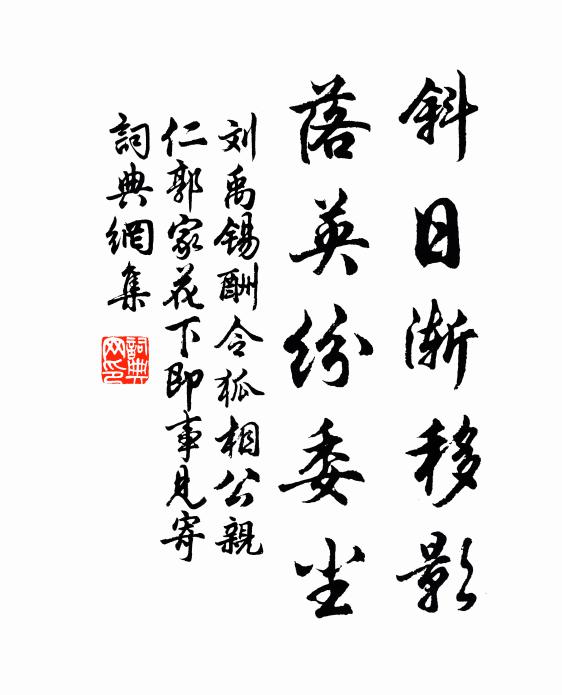 斜日渐移影
落英纷委尘
刘禹锡酬令狐相公親
仁郭家花下即事見寄
詞典網集
詞典网印